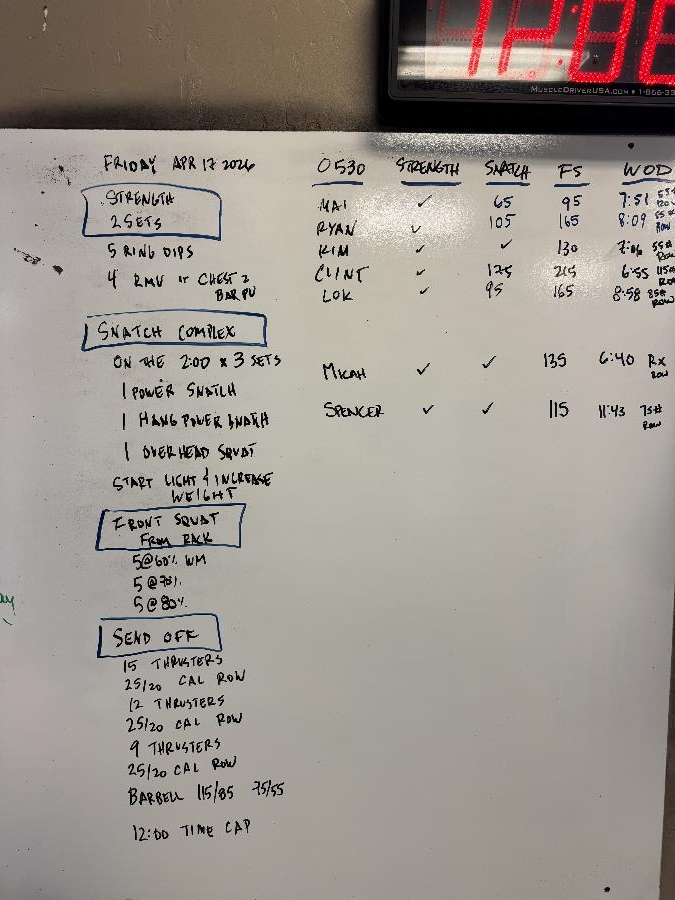 12:0
MUSCLEDRIVERUSA.COM • 1-866-33
FRIDAY APR 17 2026
STRENGTH
2 SETS
5 RING DIPS
4 RMU or CHEST 2
BAR PU
SNATCH COMPLEX
ON THE 2:00 x 3 SETS
1 POWER SNATCH
1 HANG POWER SNATCH
1 OVERHEAD SQUAT
START LIGHT & INCREASE
WEIGHT
FRONT SQUAT
FROM RACK
5@60% WM
5@70%
5@80%
SEND OFF
15 THRUSTERS
25/20 CAL ROW
12 THRUSTERS
25/20 CAL ROW
9 THRUSTERS
25/20 CAL ROW
BARBELL 115/85 75/55
12:00 TIME CAP
0530 STRENGTH SNATCH FS WOD
MAI ✓ 65 95 7:51 55# ROW
RYAN ✓ 105 165 8:09 55# ROW
KIM ✓ ✓ 130 55# ROW
CLINT ✓ 125 215 6:55 115# ROW
LOK ✓ 95 165 8:58 85# ROW
MICAH ✓ ✓ 135 6:40 RX ROW
SPENCER ✓ ✓ 115 11:43 75# ROW